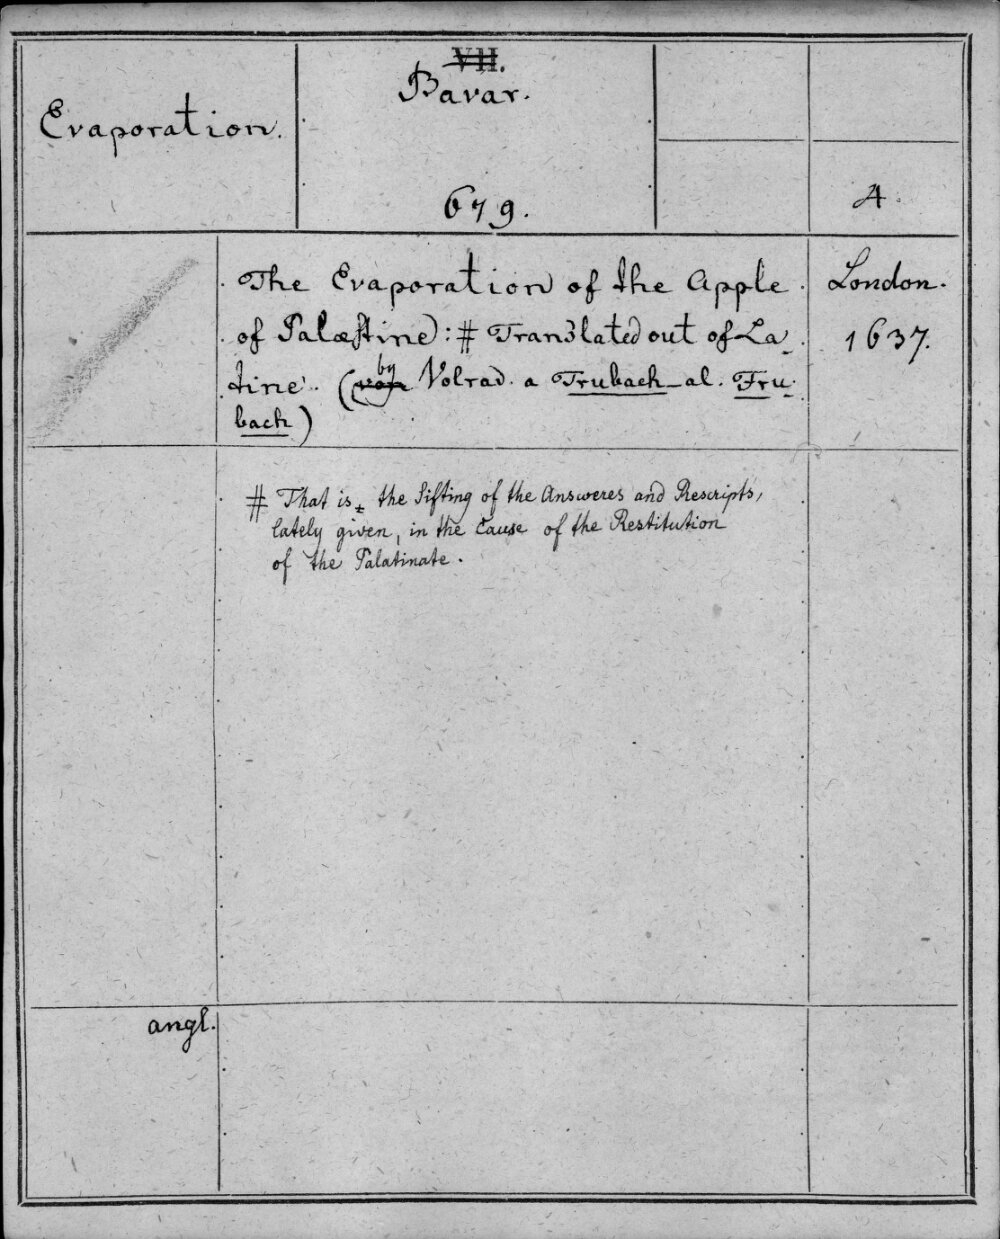 VII.
Bavar.
Evaporation.
679.
A.
The Evaporation of the Apple
of Palæstine: # Translated out of La-
tine. (by Volrad. a Trubach - al. Fru-
bach)
London.
1637.
# That is, the Sifting of the Answeres and Rescripts,
lately given, in the Cause of the Restitution
of the Palatinate.
angl.